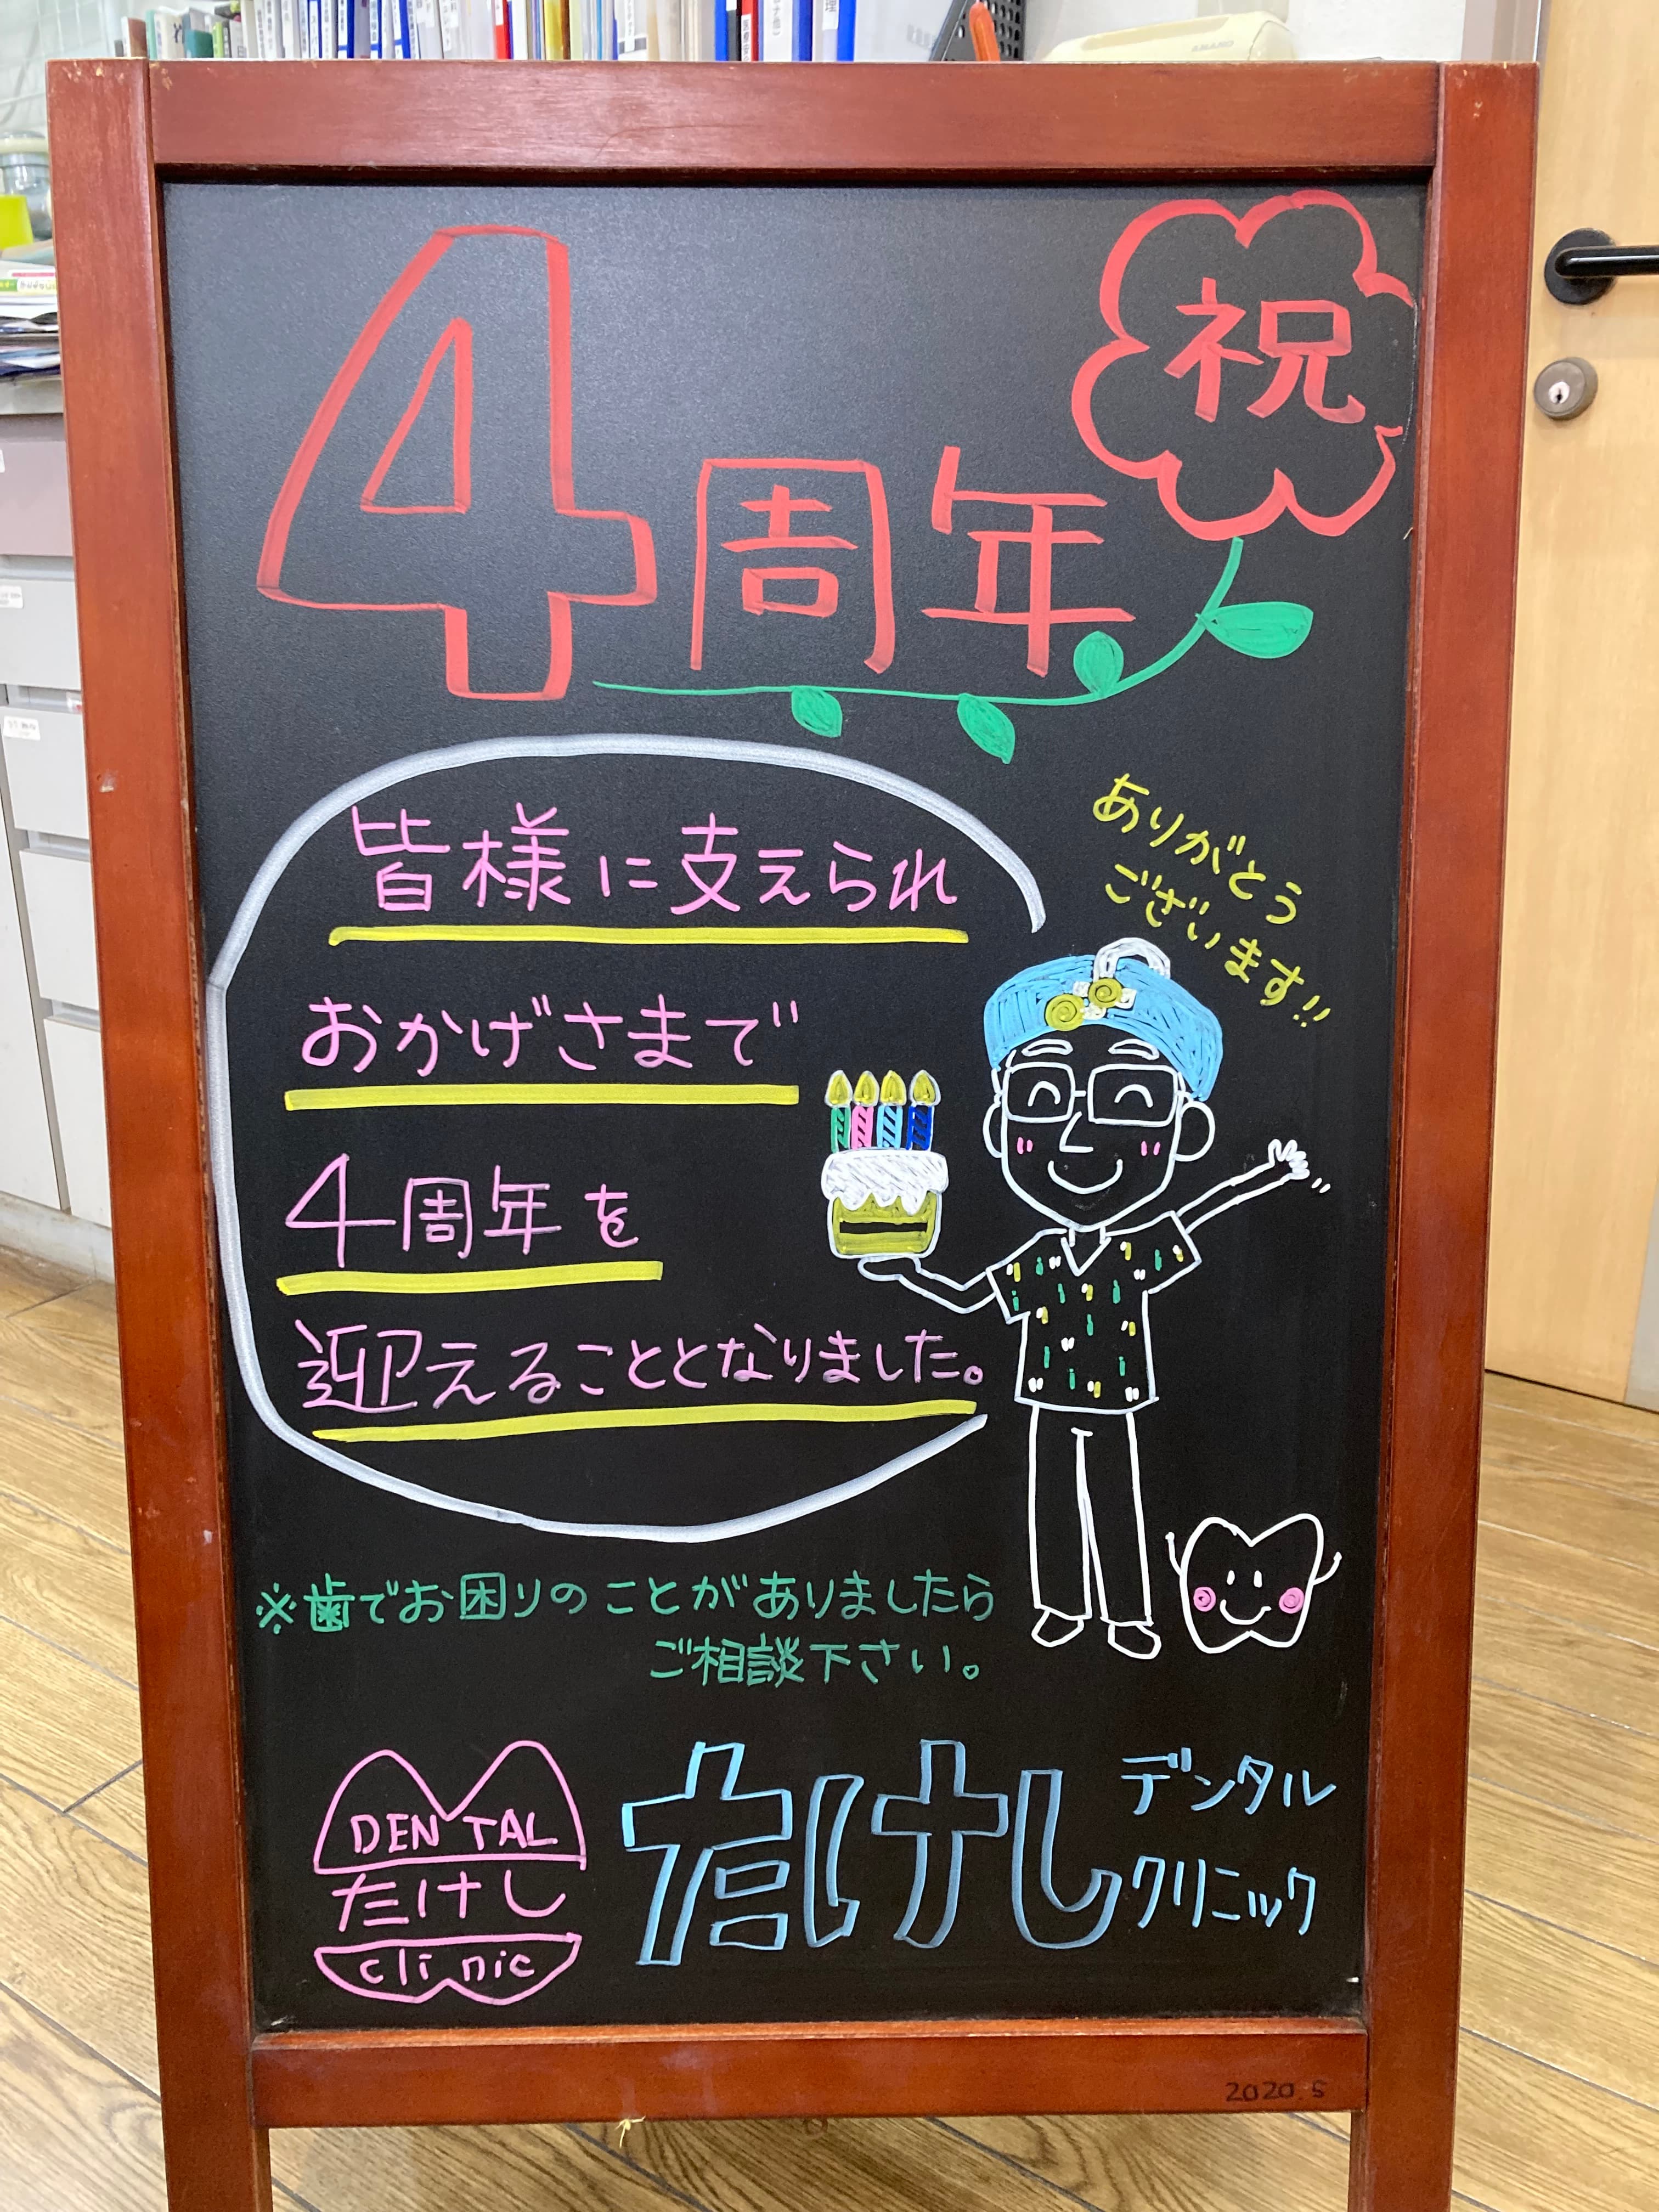 祝
4周年
皆様に支えられ
おかげさまで
4周年を
迎えることとなりました。
ありがとう
ございます!!
※歯でお困りのことがありましたら
ご相談下さい。
DENTAL
たけし
clinic
たけし
デンタル
クリニック
2020.5